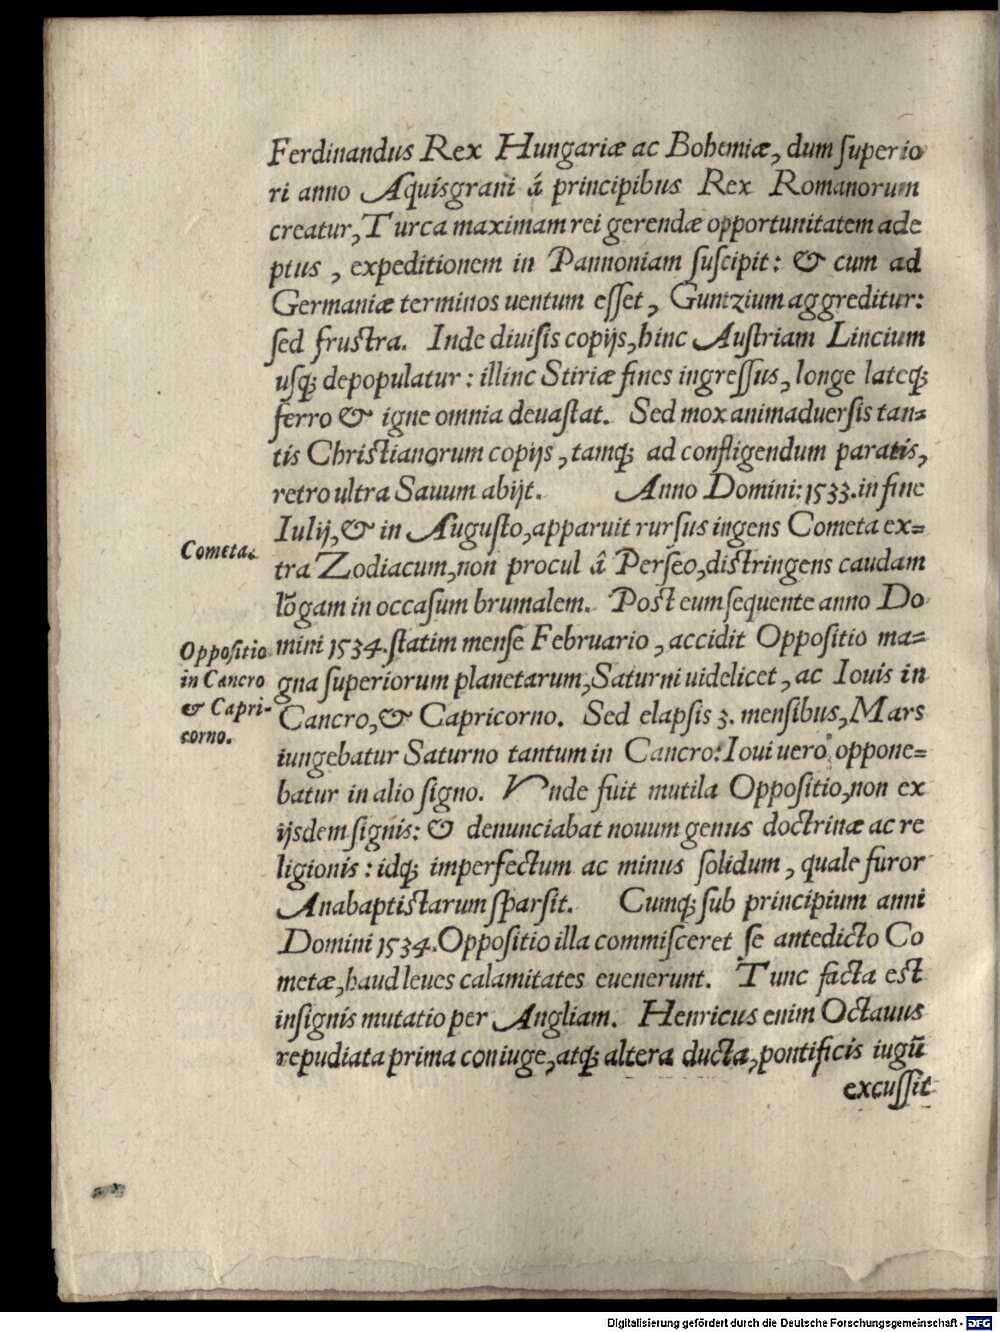 Ferdinandus Rex Hungariæ ac Bohemiæ, dum ſuperio
ri anno Aquisgrani á principibus Rex Romanorum
creatur, Turca maximam rei gerendæ opportunitatem ade
ptus, expeditionem in Pannoniam ſuſcipit: & cum ad
Germaniæ terminos uentum eſſet, Guntzium aggreditur:
ſed fruſtra. Inde diuiſis copijs, hinc Auſtriam Lincium
uſq; depopulatur: illinc Stiriæ fines ingreſſus, longe lateq;
ferro & igne omnia deuaſtat. Sed mox animaduerſis tan=
tis Chriſtianorum copijs, tamq; ad confligendum paratis,
retro ultra Sauum abijt. Anno Domini: 1533. in fine
Iulij, & in Auguſto, apparuit rurſus ingens Cometa ex=
Cometa.
tra Zodiacum, non procul á Perſeo, diſtringens caudam
lõgam in occaſum brumalem. Poſt eum ſequente anno Do
mini 1534. ſtatim menſe Februario, accidit Oppoſitio ma=
Oppoſitio
in Cancro
& Capri-
corno.
gna ſuperiorum planetarum, Saturni uidelicet, ac Iouis in
Cancro, & Capricorno. Sed elapſis 3. menſibus, Mars
iungebatur Saturno tantum in Cancro: Ioui uero oppone=
batur in alio ſigno. Vnde fuit mutila Oppoſitio, non ex
ijsdem ſignis: & denunciabat nouum genus doctrinæ ac re
ligionis: idq; imperfectum ac minus ſolidum, quale furor
Anabaptiſtarum ſparſit. Cumq; ſub principium anni
Domini 1534. Oppoſitio illa commiſceret ſe antedicto Co
metæ, haud leues calamitates euenerunt. Tunc facta eſt
inſignis mutatio per Angliam. Henricus enim Octauus
repudiata prima coniuge, atq; altera ducta, pontificis iugũ
excuſſit
Digitalisierung gefördert durch die Deutsche Forschungsgemeinschaft - DFG